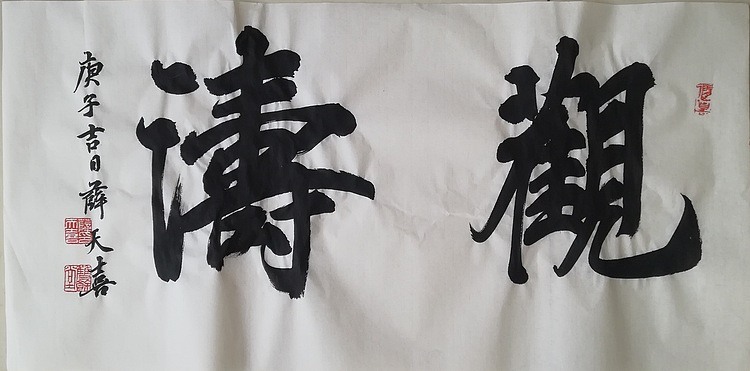 觀濤
庚子吉日薛天喜